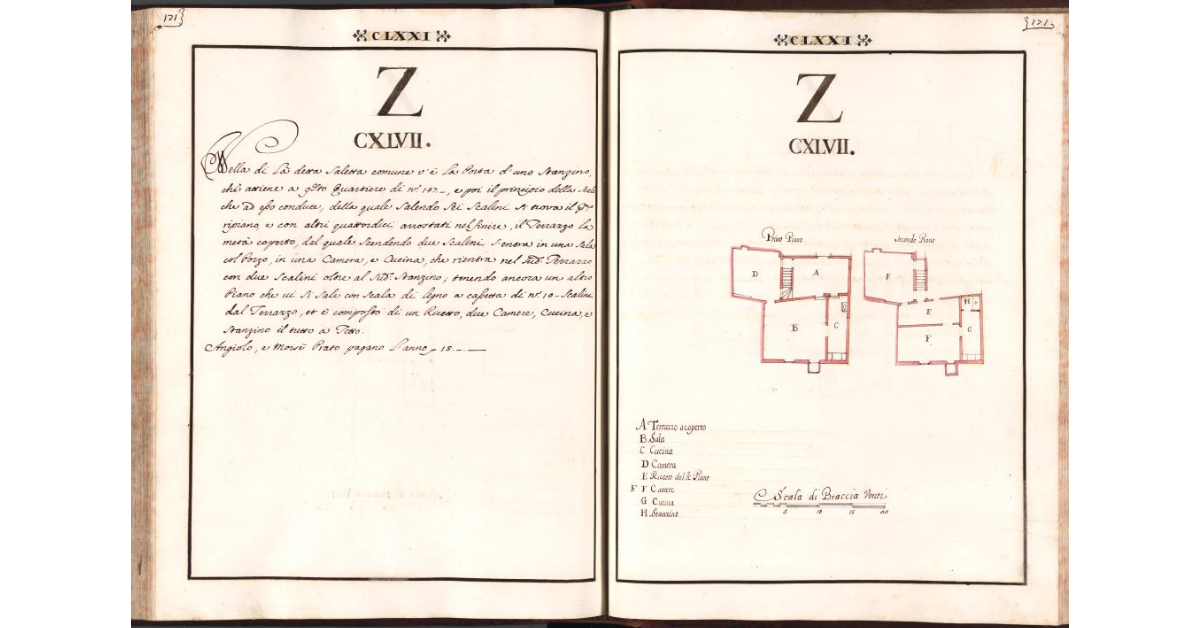 171
CLXXI
Z
CXLVII.
Nella di là detta Saletta comune v'è la Porta d'uno Stanzino,
che attiene a q.sto Quartiere di n.° 147_, e poi il principio della Scala
che ad esso conduce, della quale Salendo Sei Scalini Si trova il P.mo
ripiano, e con altri quattordici arrostati nel finire, il Terrazzo la
metà coperto, del quale Scendendo due Scalini S'entra in una Sala
col Pozzo, in una Camera, e Cucina, che rientra nel Sud.° Terrazzo
con due Scalini oltre al Sud.° Stanzino, tenendo ancora un altro
Piano che vi Si Sale con Scala di legno a cassetta di n.° 10_ Scalini
dal Terrazzo, et è composto di un Ricetto, due Camere, Cucina, e
Stanzino il tutto a Tetto.
Angiolo, e Moisè Prato pagano l'anno_ 15._._
171
CLXXI
Z
CXLVII.
Primo Piano
Secondo Piano
D
A
B
C
F
E
F
H
G
A Terrazzo scoperto
B Sala
C Cucina
D Camera
E Ricetto del 2.° Piano
F F Camere
G Cucina
H Stanzino
Scala di Braccia Venti
5 10 15 20